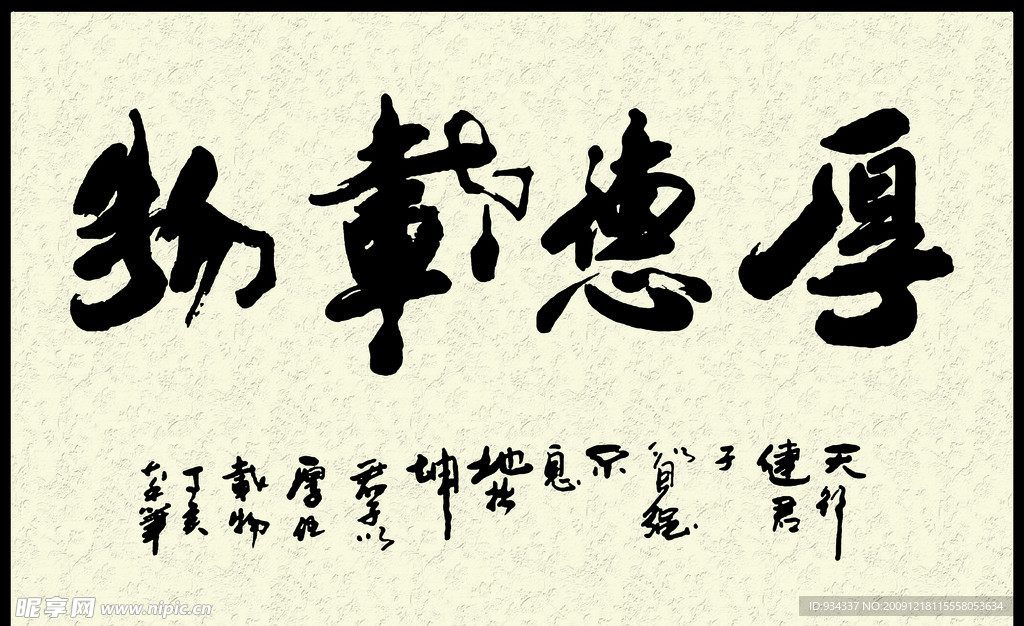 厚德載物
天行
健君
子
以自强
不
息
地势
坤
君子以
厚德
載物
丁亥
昵享网 www.nipic.cn
ID:934337 NO:20091218115558053634